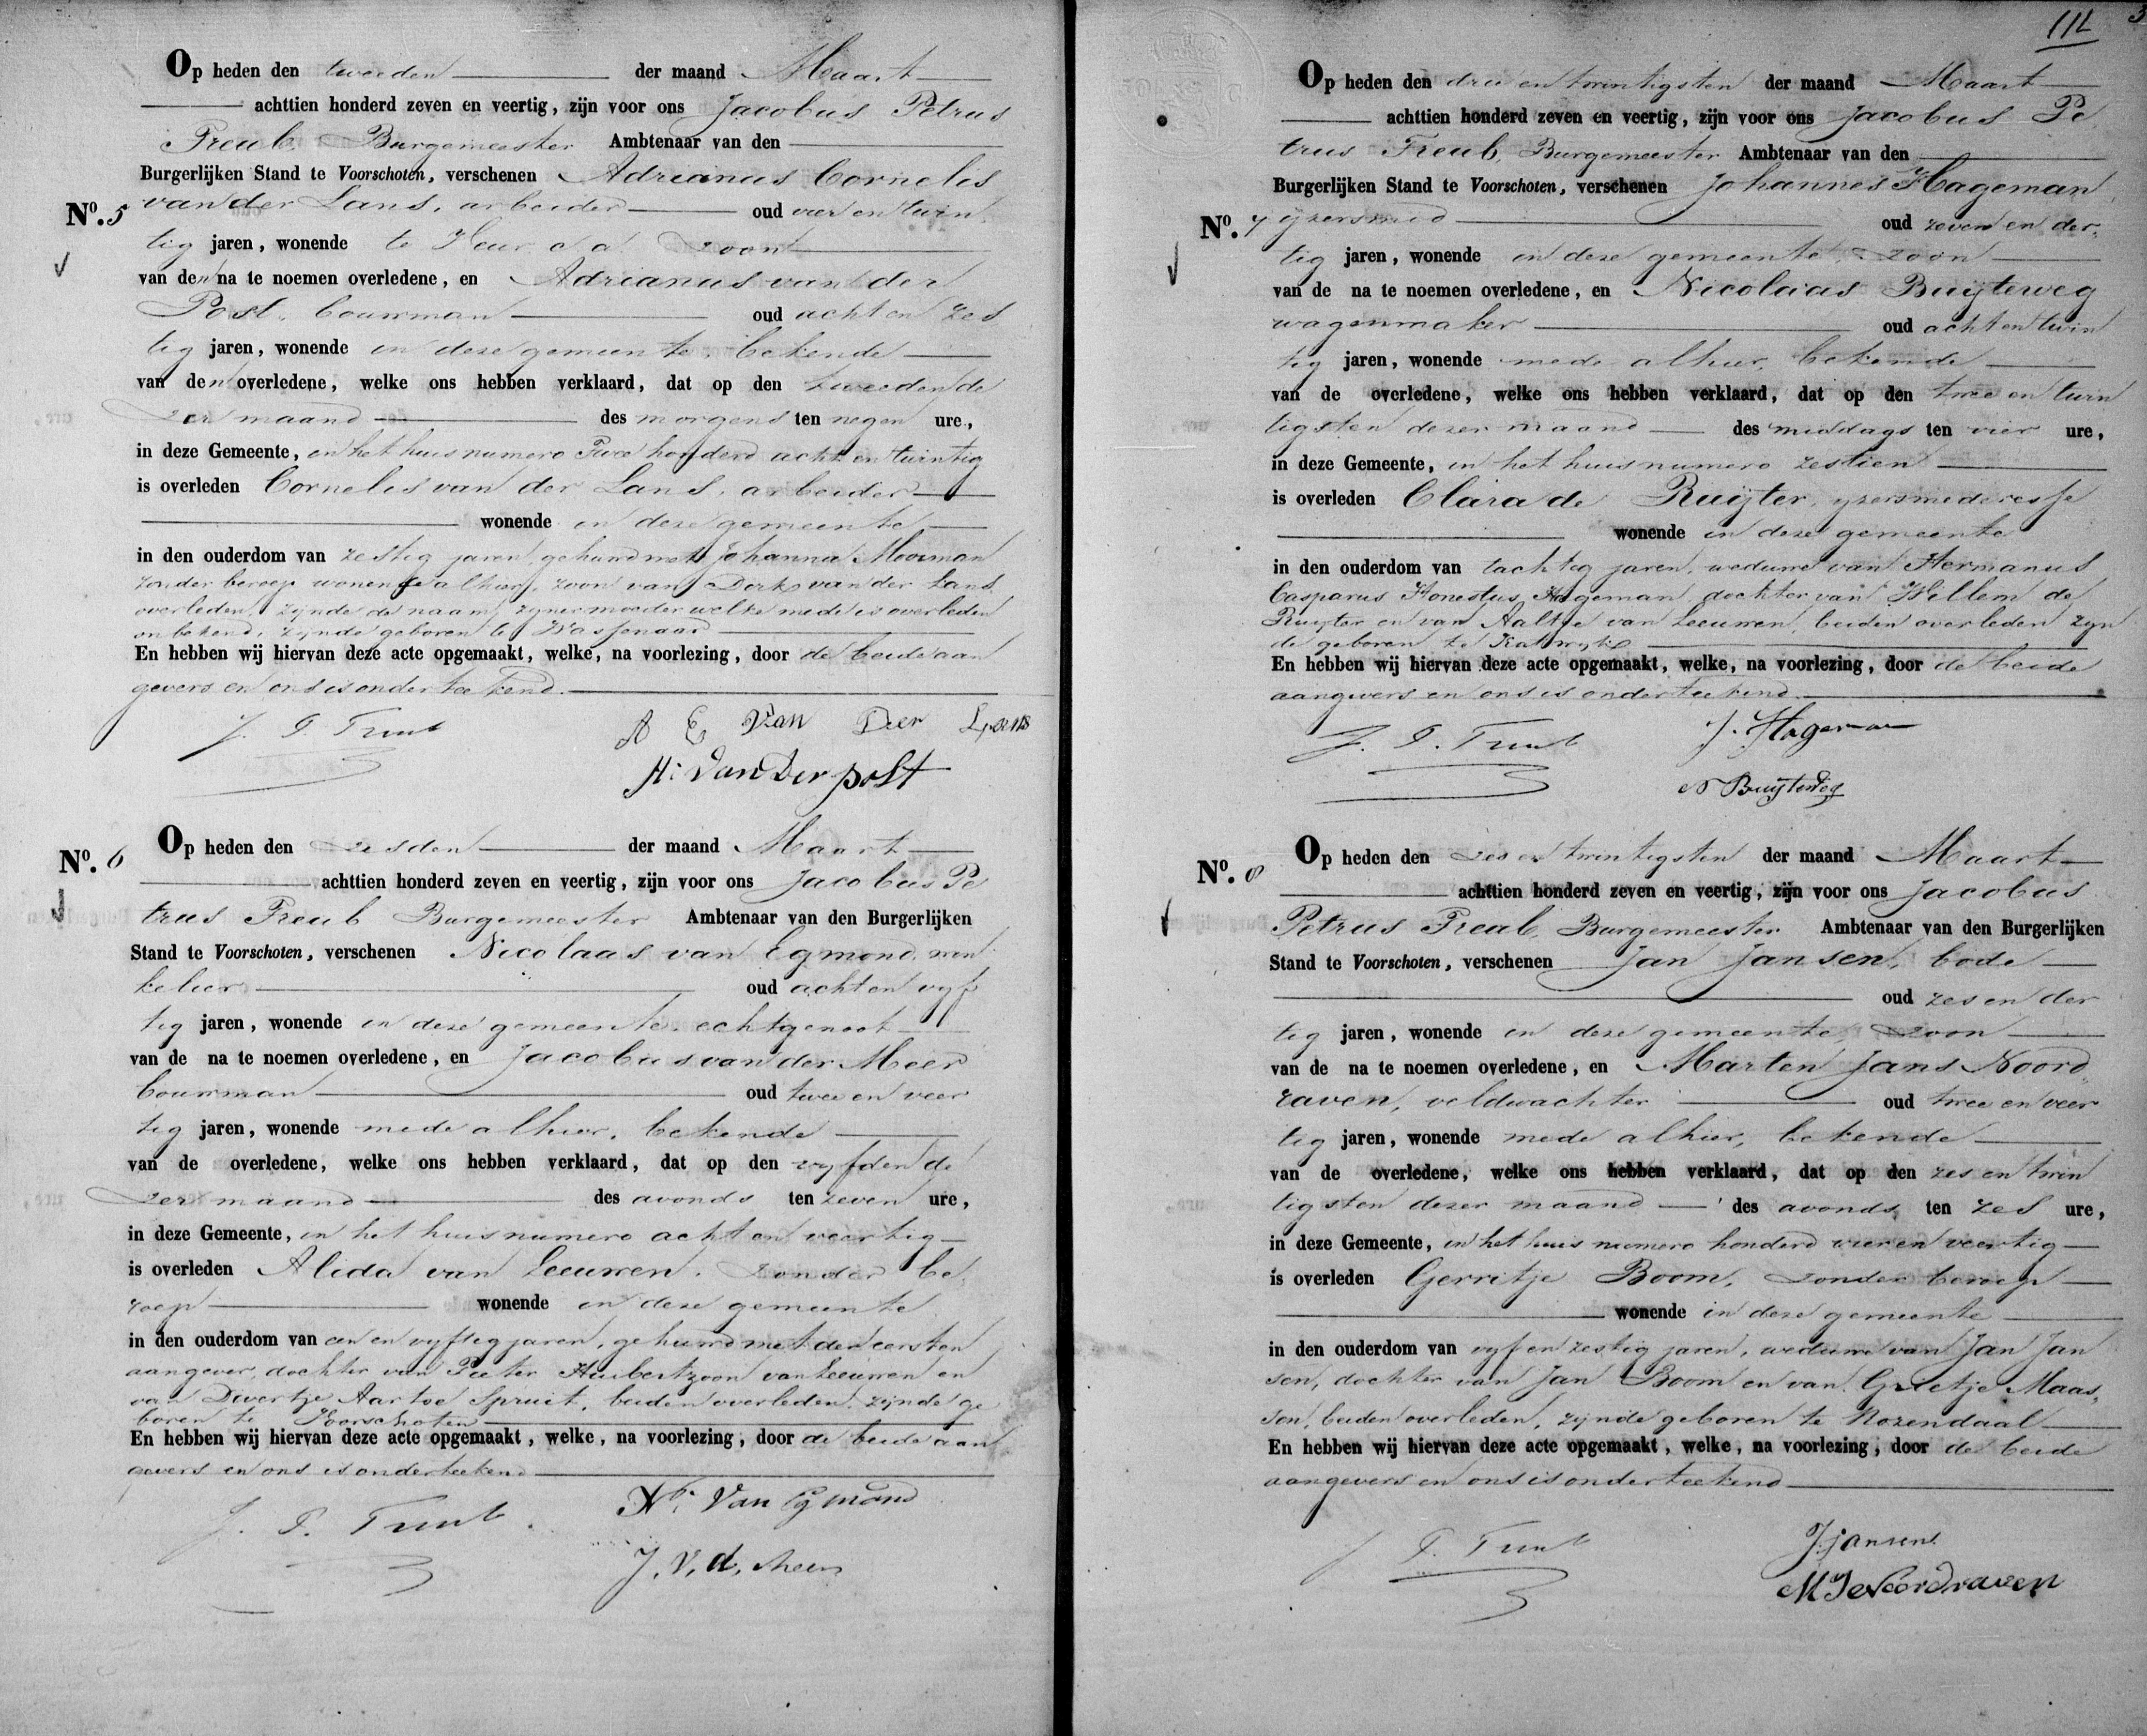 Op heden den tweeden der maand Maart
achttien honderd zeven en veertig, zijn voor ons Jacobus Petrus
Treub, Burgemeester Ambtenaar van den
Burgerlijken Stand te Voorschoten, verschenen Adrianus Cornelis
No. 5 van der Lans, arbeider oud vier en twin
tig jaren, wonende te zoon
van den na te noemen overledene, en Adrianus van der
Post, bouwman oud acht en zes
tig jaren, wonende in deze gemeente, bekende
van den overledene, welke ons hebben verklaard, dat op den tweeden de
zer maand des morgens ten negen ure,
in deze Gemeente, in het huis numero Twee honderd acht en twintig
is overleden Cornelis van der Lans, arbeider
wonende in deze gemeente
in den ouderdom van zestig jaren, gehuwd met Johanna Moorman
zonder beroep wonende alhier, zoon van Dirk van der Lans
overleden, zijnde de naam zijner moeder welke mede is overleden
onbekend, zijnde geboren te Wassenaar
En hebben wij hiervan deze acte opgemaakt, welke, na voorlezing, door de beide aan
gevers en ons is onderteekend.
J. P. Treub A C Van Der Lans
A: Van Der post
Op heden den zesden der maand Maart
No. 6
achttien honderd zeven en veertig, zijn voor ons Jacobus Pe
trus Treub Burgemeester Ambtenaar van den Burgerlijken
Stand te Voorschoten, verschenen Nicolaas van Egmond, win
kelier oud acht en vijf
tig jaren, wonende in deze gemeente, echtgenoot
van de na te noemen overledene, en Jacobus van der Meer
bouwman oud twee en veer
tig jaren, wonende mede alhier, bekende
van de overledene, welke ons hebben verklaard, dat op den vijfden de
zer maand des avonds ten zeven ure,
in deze Gemeente, in het huis numero acht en veertig
is overleden Alida van Leeuwen, zonder be
roep wonende in deze gemeente
in den ouderdom van een en vijftig jaren, gehuwd met den eersten
aangever, dochter van Pieter Huibertzoon van Leeuwen en
van Divertje Aartse Spruit, beiden overleden, zijnde ge
boren te Voorschoten
En hebben wij hiervan deze acte opgemaakt, welke, na voorlezing, door de beide aan
gevers en ons is onderteekend
J. P. Treub. Ns. Van Egmond
J. V. d. Meer
111 3
Op heden den drie en twintigsten der maand Maart
achttien honderd zeven en veertig, zijn voor ons Jacobus Pe
trus Treub, Burgemeester Ambtenaar van den
Burgerlijken Stand te Voorschoten, verschenen Johannes Hageman,
No. 7 ijzersmid oud zeven en der
tig jaren, wonende in deze gemeente, zoon
van de na te noemen overledene, en Nicolaas Buijteweg
wagenmaker oud acht en twin
tig jaren, wonende mede alhier, bekende
van de overledene, welke ons hebben verklaard, dat op den twee en twin
tigsten dezer maand des middags ten vier ure,
in deze Gemeente, in het huis numero zestien
is overleden Clara de Ruijter, ijzersmederesse
wonende in deze gemeente
in den ouderdom van tachtig jaren, weduwe van Hermanus
Casparus Honestus Hageman, dochter van Willem de
Ruijter en van Aaltje van Leeuwen, beiden overleden zijn
de geboren te Katwijk
En hebben wij hiervan deze acte opgemaakt, welke, na voorlezing, door de beide
aangevers en ons is onderteekend.
J. P. Treub J. Hageman
N Buijteweg
Op heden den zes en twintigsten der maand Maart
No. 8
achttien honderd zeven en veertig, zijn voor ons Jacobus
Petrus Treub, Burgemeester Ambtenaar van den Burgerlijken
Stand te Voorschoten, verschenen Jan Jansen, bode
oud zes en der
tig jaren, wonende in deze gemeente, zoon
van de na te noemen overledene, en Marten Jans Noord
raven, veldwachter oud twee en veer
tig jaren, wonende mede alhier, bekende
van de overledene, welke ons hebben verklaard, dat op den zes en twin
tigsten dezer maand des avonds ten zes ure,
in deze Gemeente, in het huis numero honderd vier en veertig
is overleden Gerritje Boom, zonder beroep
wonende in deze gemeente
in den ouderdom van vijf en zestig jaren, weduwe van Jan Jan
sen, dochter van Jan Boom en van Grietje Maas
sen, beiden overleden, zijnde geboren te Rozendaal
En hebben wij hiervan deze acte opgemaakt, welke, na voorlezing, door de beide
aangevers en ons is onderteekend
J P. Treub J. Jansen.
M J Noordraven